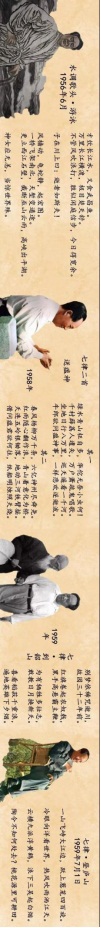 水调歌头·游泳
1956年6月
才饮长江水，又食武昌鱼。
万里长江横渡，极目楚天舒。
不管风吹浪打，胜似闲庭信步，今日得宽余。
子在川上曰：逝者如斯夫！
风樯动，龟蛇静，起宏图。
一桥飞架南北，天堑变通途。
更立西江石壁，截断巫山云雨，高峡出平湖。
神女应无恙，当惊世界殊。
七律二首
送瘟神
1958年
其一
绿水青山枉自多，华佗无奈小虫何！
千村薜荔人遗矢，万户萧疏鬼唱歌。
坐地日行八万里，巡天遥看一千河。
牛郎欲问瘟神事，一样悲欢逐逝波。
其二
春风杨柳万千条，六亿神州尽舜尧。
红雨随心翻作浪，青山着意化为桥。
天连五岭银锄落，地动三河铁臂摇。
借问瘟君欲何往，纸船明烛照天烧。
七律·到韶山
1959年
别梦依稀咒逝川，故园三十二年前。
红旗卷起农奴戟，黑手高悬霸主鞭。
为有牺牲多壮志，敢教日月换新天。
喜看稻菽千重浪，遍地英雄下夕烟。
七律·登庐山
1959年7月1日
一山飞峙大江边，跃上葱茏四百旋。
冷眼向洋看世界，热风吹雨洒江天。
云横九派浮黄鹤，浪下三吴起白烟。
陶令不知何处去？桃花源里可耕田。